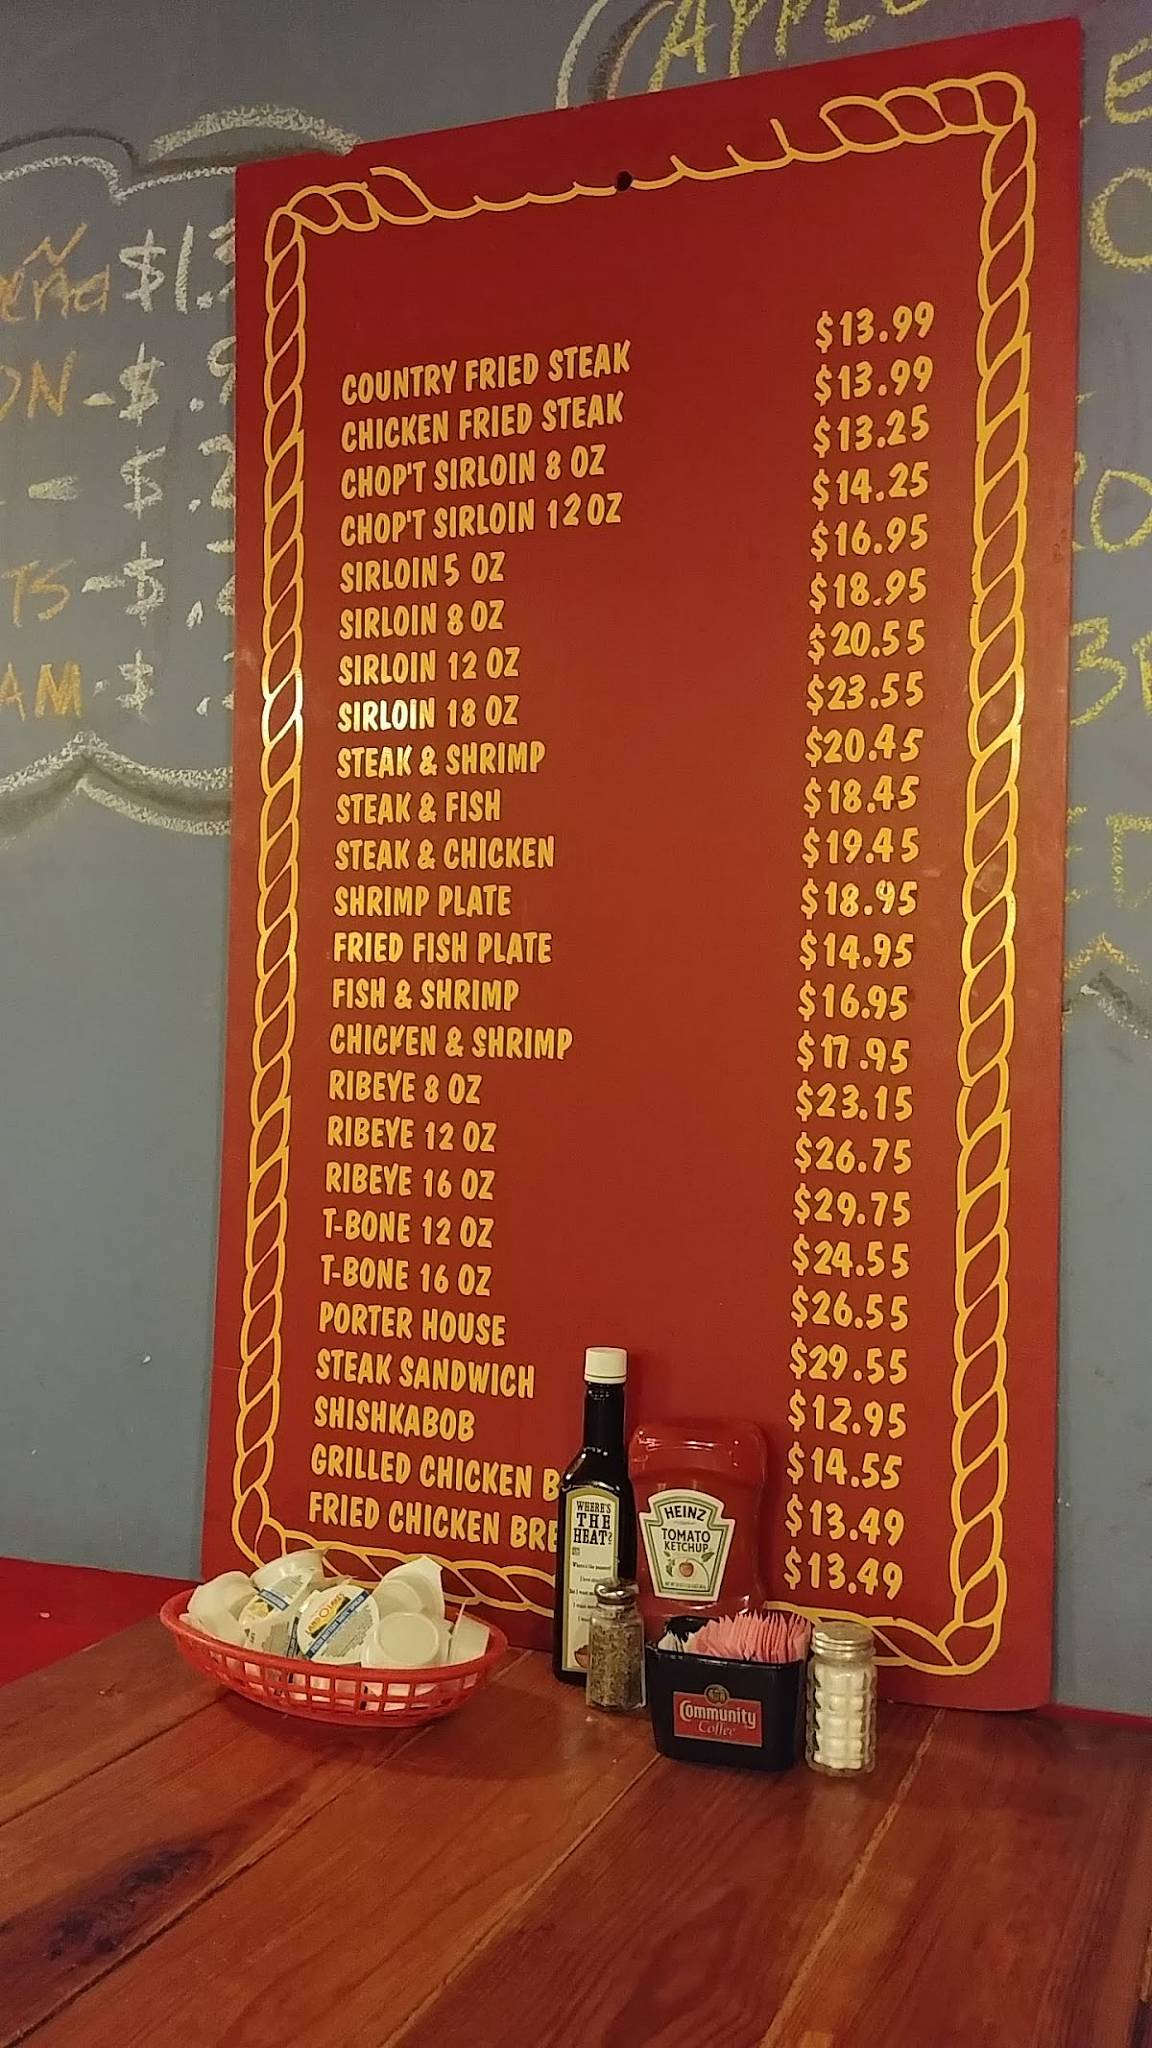 APPL
Ñ
eña $1.
ON - $ .9
- $ .
TS - $ .
AM - $ .
COUNTRY FRIED STEAK $13.99
CHICKEN FRIED STEAK $13.99
CHOP'T SIRLOIN 8 OZ $13.25
CHOP'T SIRLOIN 12 OZ $14.25
SIRLOIN 5 OZ $16.95
SIRLOIN 8 OZ $18.95
SIRLOIN 12 OZ $20.55
SIRLOIN 18 OZ $23.55
STEAK & SHRIMP $20.45
STEAK & FISH $18.45
STEAK & CHICKEN $19.45
SHRIMP PLATE $18.95
FRIED FISH PLATE $14.95
FISH & SHRIMP $16.95
CHICKEN & SHRIMP $17.95
RIBEYE 8 OZ $23.15
RIBEYE 12 OZ $26.75
RIBEYE 16 OZ $29.75
T-BONE 12 OZ $24.55
T-BONE 16 OZ $26.55
PORTER HOUSE $29.55
STEAK SANDWICH $12.95
SHISHKABOB $14.55
GRILLED CHICKEN B $13.49
FRIED CHICKEN BRE $13.49
WHERE'S
THE
HEAT?
HEINZ
TOMATO
KETCHUP
Community
Coffee